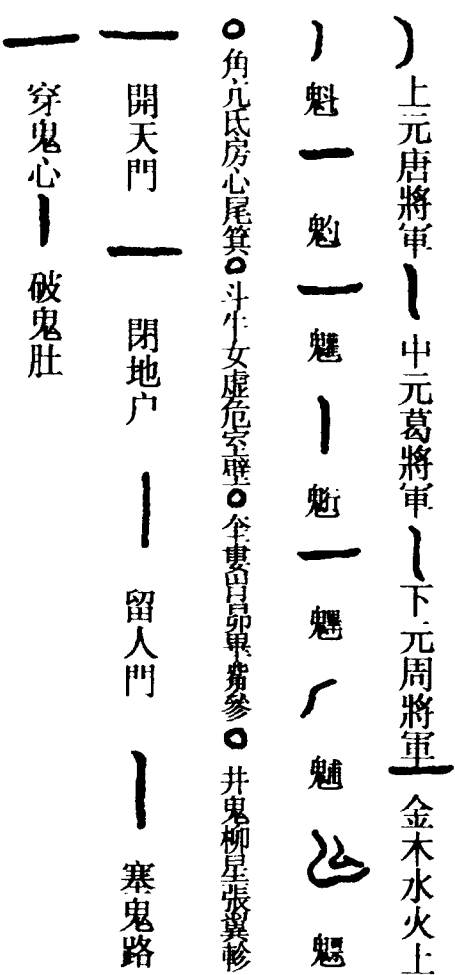 上元唐將軍 中元葛將軍 下元周將軍 金木水火土
魁
角亢氐房心尾箕 斗牛女虛危室壁 奎婁胃昴畢觜參 井鬼柳星張翼軫
開天門 閉地户 留人門 塞鬼路
穿鬼心 破鬼肚